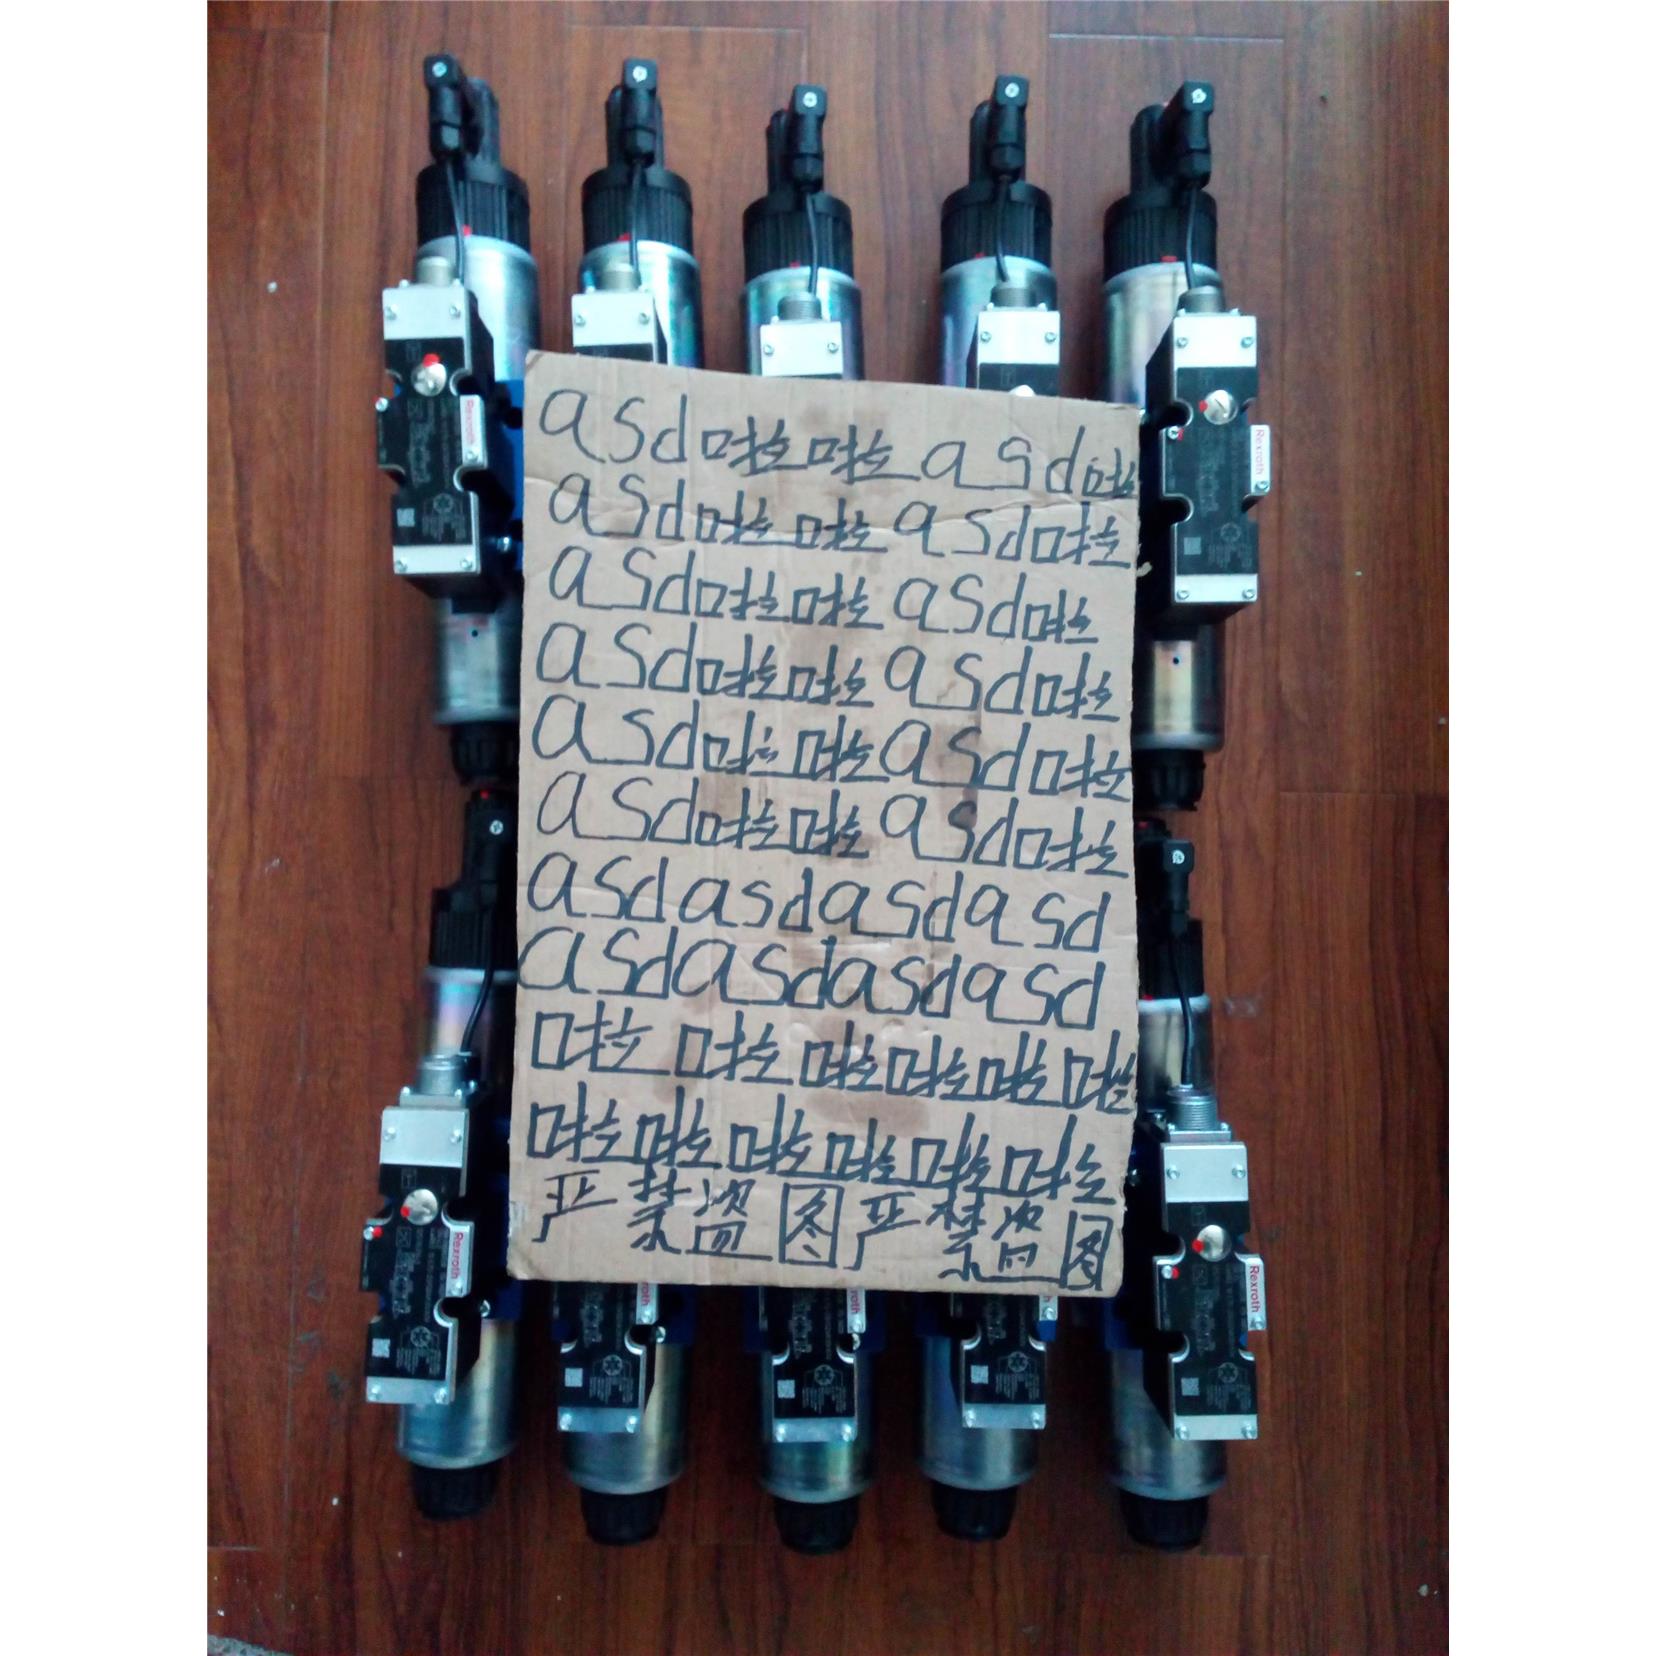 asd啦啦asd啦
asd啦啦asd啦
asd啦啦asd啦
asd啦啦asd啦
asd啦啦asd啦
asd啦啦asd啦
asdasdasdasd
asdasdasdasd
啦啦啦啦啦啦
啦啦啦啦啦啦
严禁盗图严禁盗图
Rexroth
Rexroth
Rexroth
Rexroth